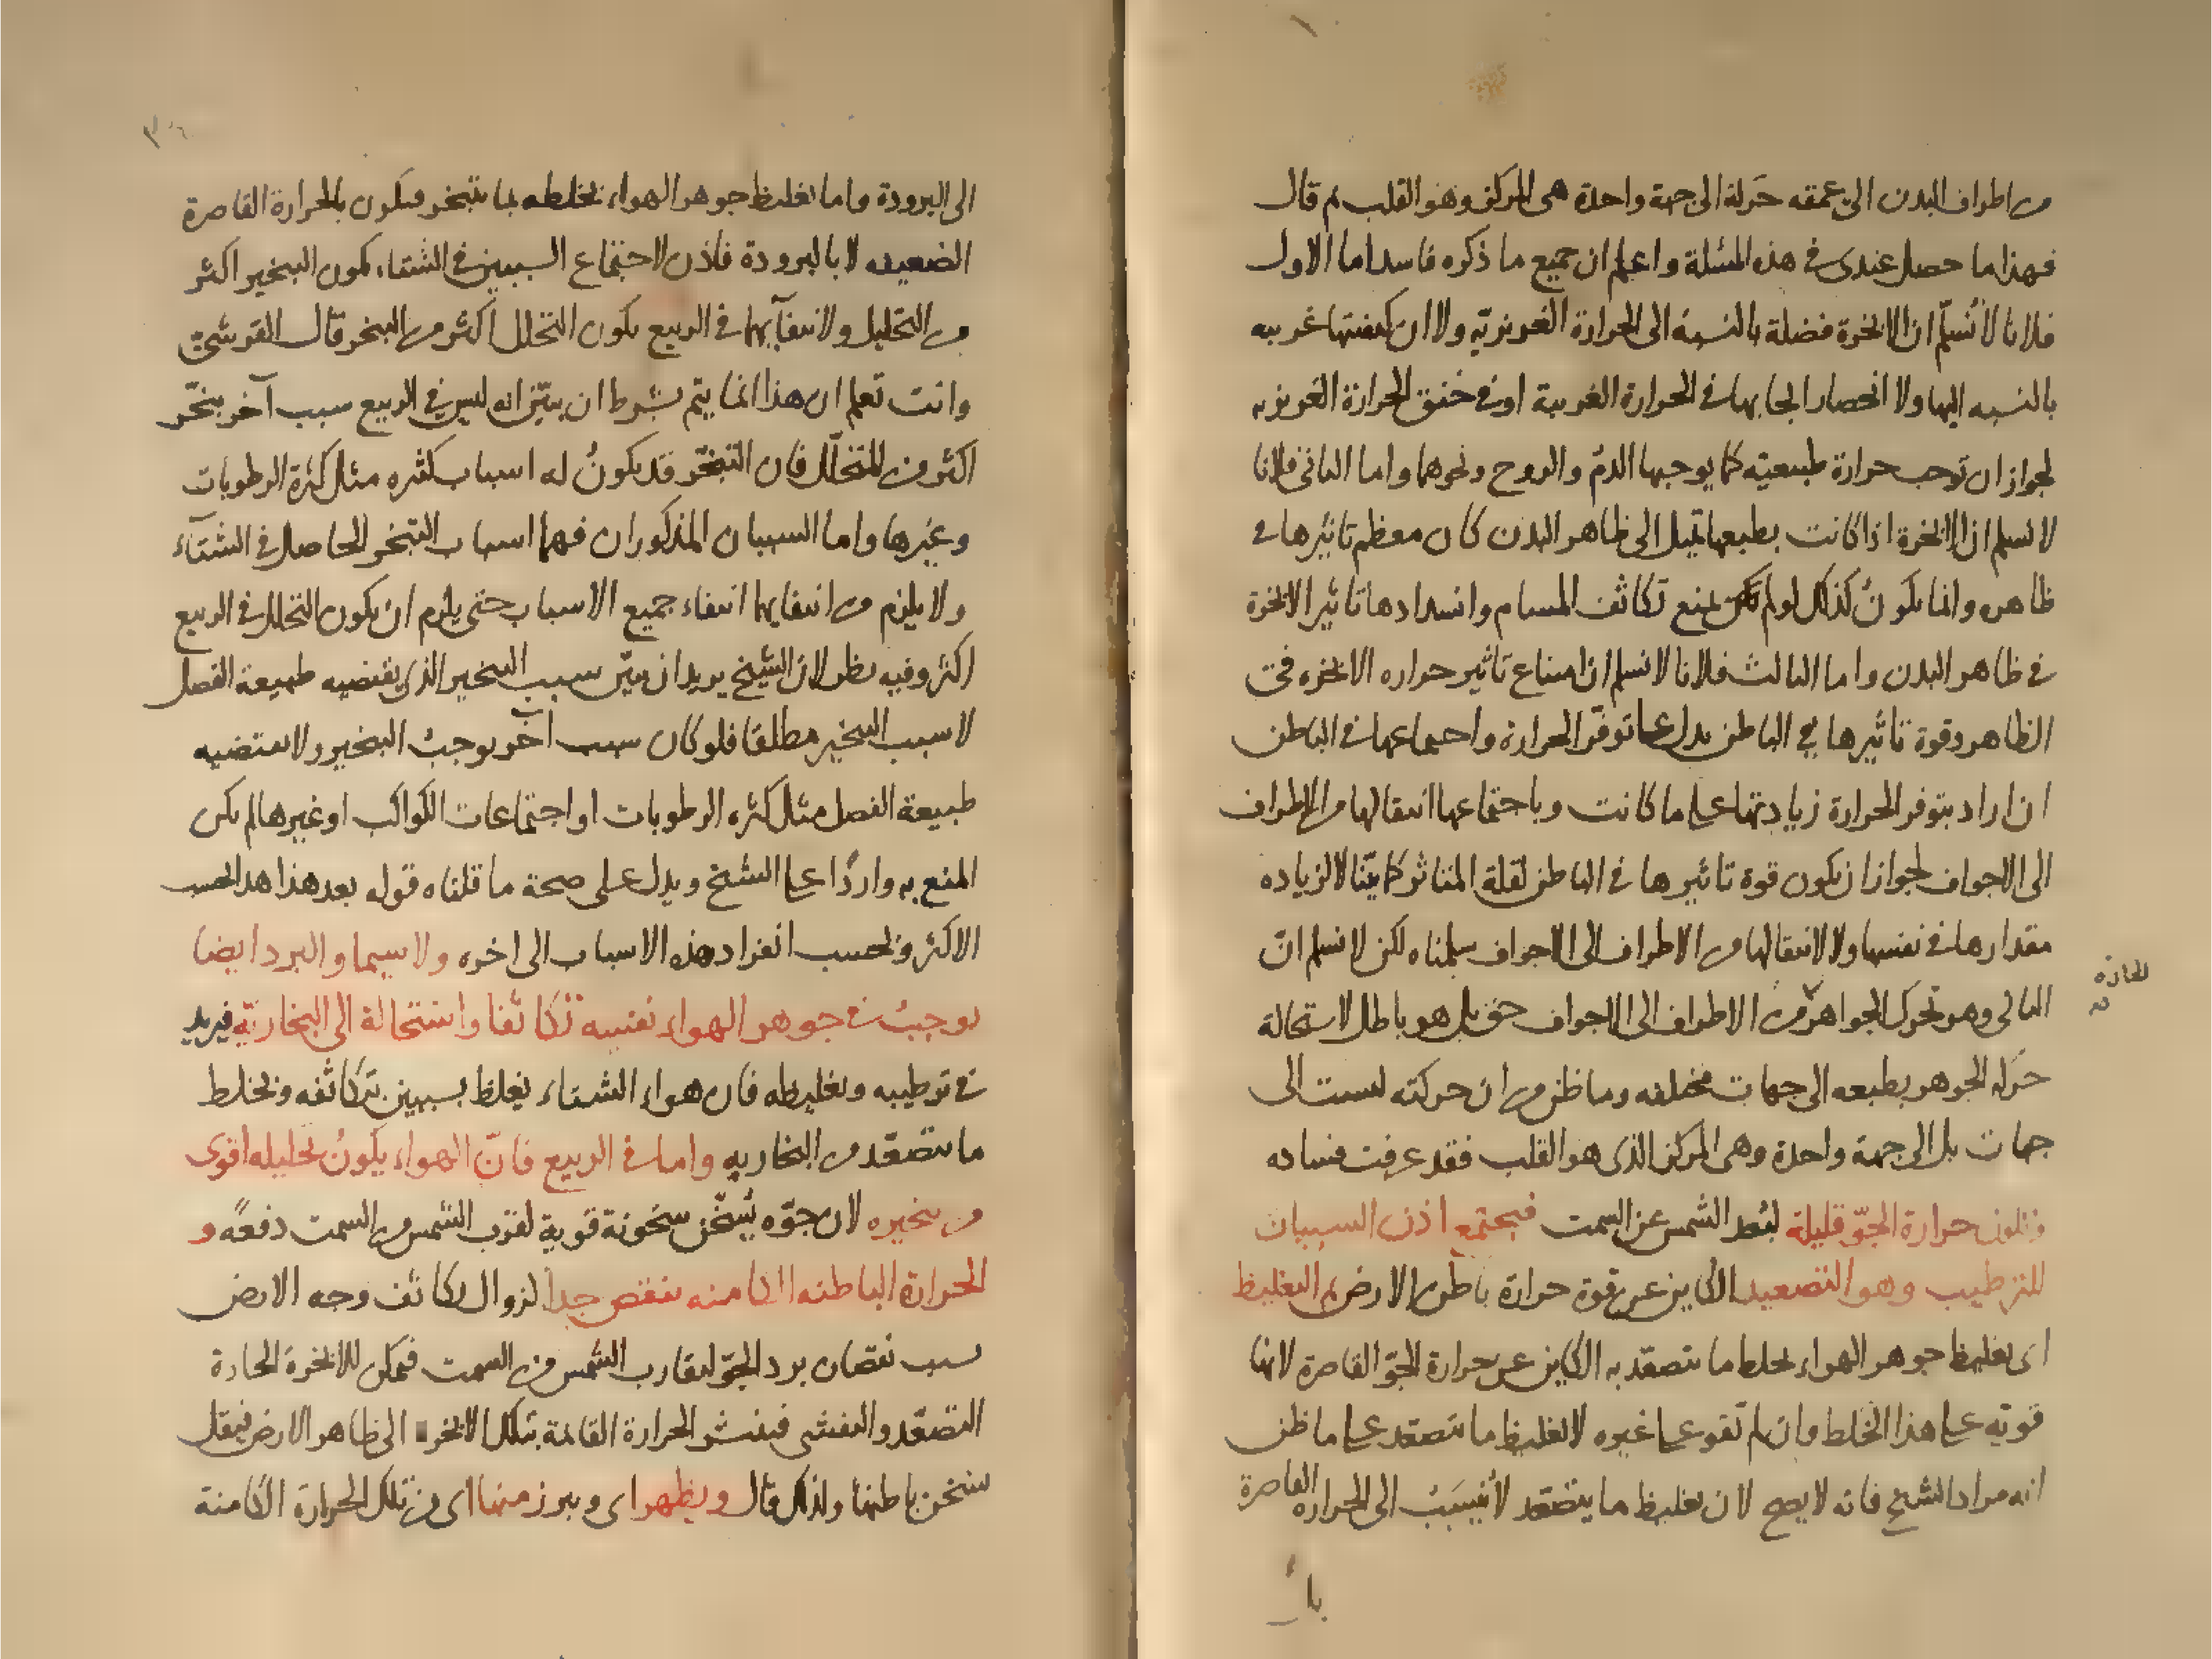 من اطراف البدن الى عمقه حركة الى جهة واحدة هى المركز وهو القلب ثم قال
فهذا ما حصل عندى فى هذه المسئلة واعلم ان جميع ما ذكره فاسد اما الاول
فلانا لا نُسلّم ان الابخرة فضلة بالنسبة الى الحرارة الغريزيّة ولا ان كيفيتها غريبه
بالنسبه اليها ولا انحصار ايجابها فى الحرارة الغريبة او فى خنق الحرارة الغريزيه
لجواز ان توجب حرارة طبيعيّه كما يوجبها الدم والروح ونحوهما واما الثانى فلانا
لا نسلم ان الابخرة اذا كانت بطبعها تميل الى ظاهر البدن كان معظم تاثيرها فى
ظاهره وانما يكونُ كذلك لو لم يكن يمنع تكاثف المسام وانسدادها تاثير الابخرة
فى ظاهر البدن واما الثالث فلانا لا نسلم ان امتناع تاثير حراره الابخره فى
الظاهر وقوة تاثيرها فى الباطن يدل على توفّر الحرارة واجتماعها فى الباطن
ان اراد بتوفر الحرارة زيادتها على ما كانت وباجتماعها انتقالها من الاطراف
الى الاجواف لجواز ان يكون قوة تاثيرها فى الباطن لقلة المتاثر كما بيّنا لا لزياده
مقدارها فى نفسها ولا لانتقالها من الاطراف الى الاجواف سلمناه لكن لا نسلم انّ
التالى وهو تحرك الجواهر من الاطراف الى الاجواف حق بل هو باطل لاستحالة
الحارة
حركة الجوهر بطبعه الى جهات مختلفه وما ظن من ان حركته ليست الى
جهات بل الى جهة واحدة وهى المركز الذى هو القلب فقد عرفت فساده
وتكون حرارة الجوّ قليلة لبُعد الشمس عن السمت فيجتمع اذن السببان
للترطيب وهو التصعيد الكاين عن قوة حرارة باطن الارض ثم التغليظ
اى تغليظ جوهر الهواء بخلط ما يتصعّد به الكاين عن حرارة الجوّ القاصرة لانها
قويه على هذا الخلط وان لم تقو على غيره لا تغليظ ما يتصعّد على ما ظن
انه مراد الشيخ فانه لا يصح لان تغليظ ما يتصعّد لا يُنسَبُ الى الحراره القاصرة
بل
الى البرودة واما تغليظ جوهر الهواء بخلطه بما يتبخر فيكون بالحرارة القاصرة
الضعيفه لا بالبرودة فاذن لاجتماع السببين فى الشتاء يكون التبخير اكثر
من التحليل ولانتفآئهما فى الربيع يكون التحلل اكثر من التبخر قال القرشىّ
وانت تعلم ان هذا انما يتم بشرط ان يبيّن انه ليس فى الربيع سبب آخر يبخّر
اكثر من المتحلّل فان التبخّر قد يكونُ له اسباب كثيره مثل كثرة الرطوبات
وغيرها واما السببان المذكوران فهما اسباب التبخر الحاصل فى الشتآء
ولا يلزم من انتفايهما انتفاء جميع الاسباب حتى يلزم ان يكون التحلل فى الربيع
اكثر وفيه نظر لان الشيخ يريد ان يبيّن سبب التبخير الذى يقتضيه طبيعة الفصل
لا سبب التبخير مطلقا فلو كان سبب آخر يوجبُ التبخير ولا يقتضيه
طبيعة الفصل مثل كثره الرطوبات او اجتماعات الكواكب او غيرها لم يكن
المنع به واردًا على الشيخ ويدل على صحة ما قلناه قوله بعد هذا هذا بحسب
الاكثر وبحسب انفراد هذه الاسباب الى اخره ولا سيما والبرد ايضا
يوجبُ فى جوهر الهواء نفسه تكاثفا واستحالة الى البخاريّة فيريد
فى ترطيبه وتغليظه فان هواء الشتاء يغلظ بسببين بتكاثفه وبخلط
ما يتصعّد من البخاريه واما فى الربيع فانّ الهواء يكونُ تحليله اقوى
من تبخيره لان جوّه يُسخّن سخونة قوية لقرب الشمس من السمت دفعةً و
الحرارة الباطنه الكامنه تنقص جدا لزوال تكاثف وجه الارض
بسبب نقصان برد الجوّ لتقارب الشمس من السمت فيمكن للابخرة الحادة
التصعّد والتفشى فينتشر الحرارة القائمة بتلك الابخره الى ظاهر الارض فيقل
سخن باطنها ولذلك قال ويظهر اى ويبرز منها اى من تلك الحرارة الكامنة